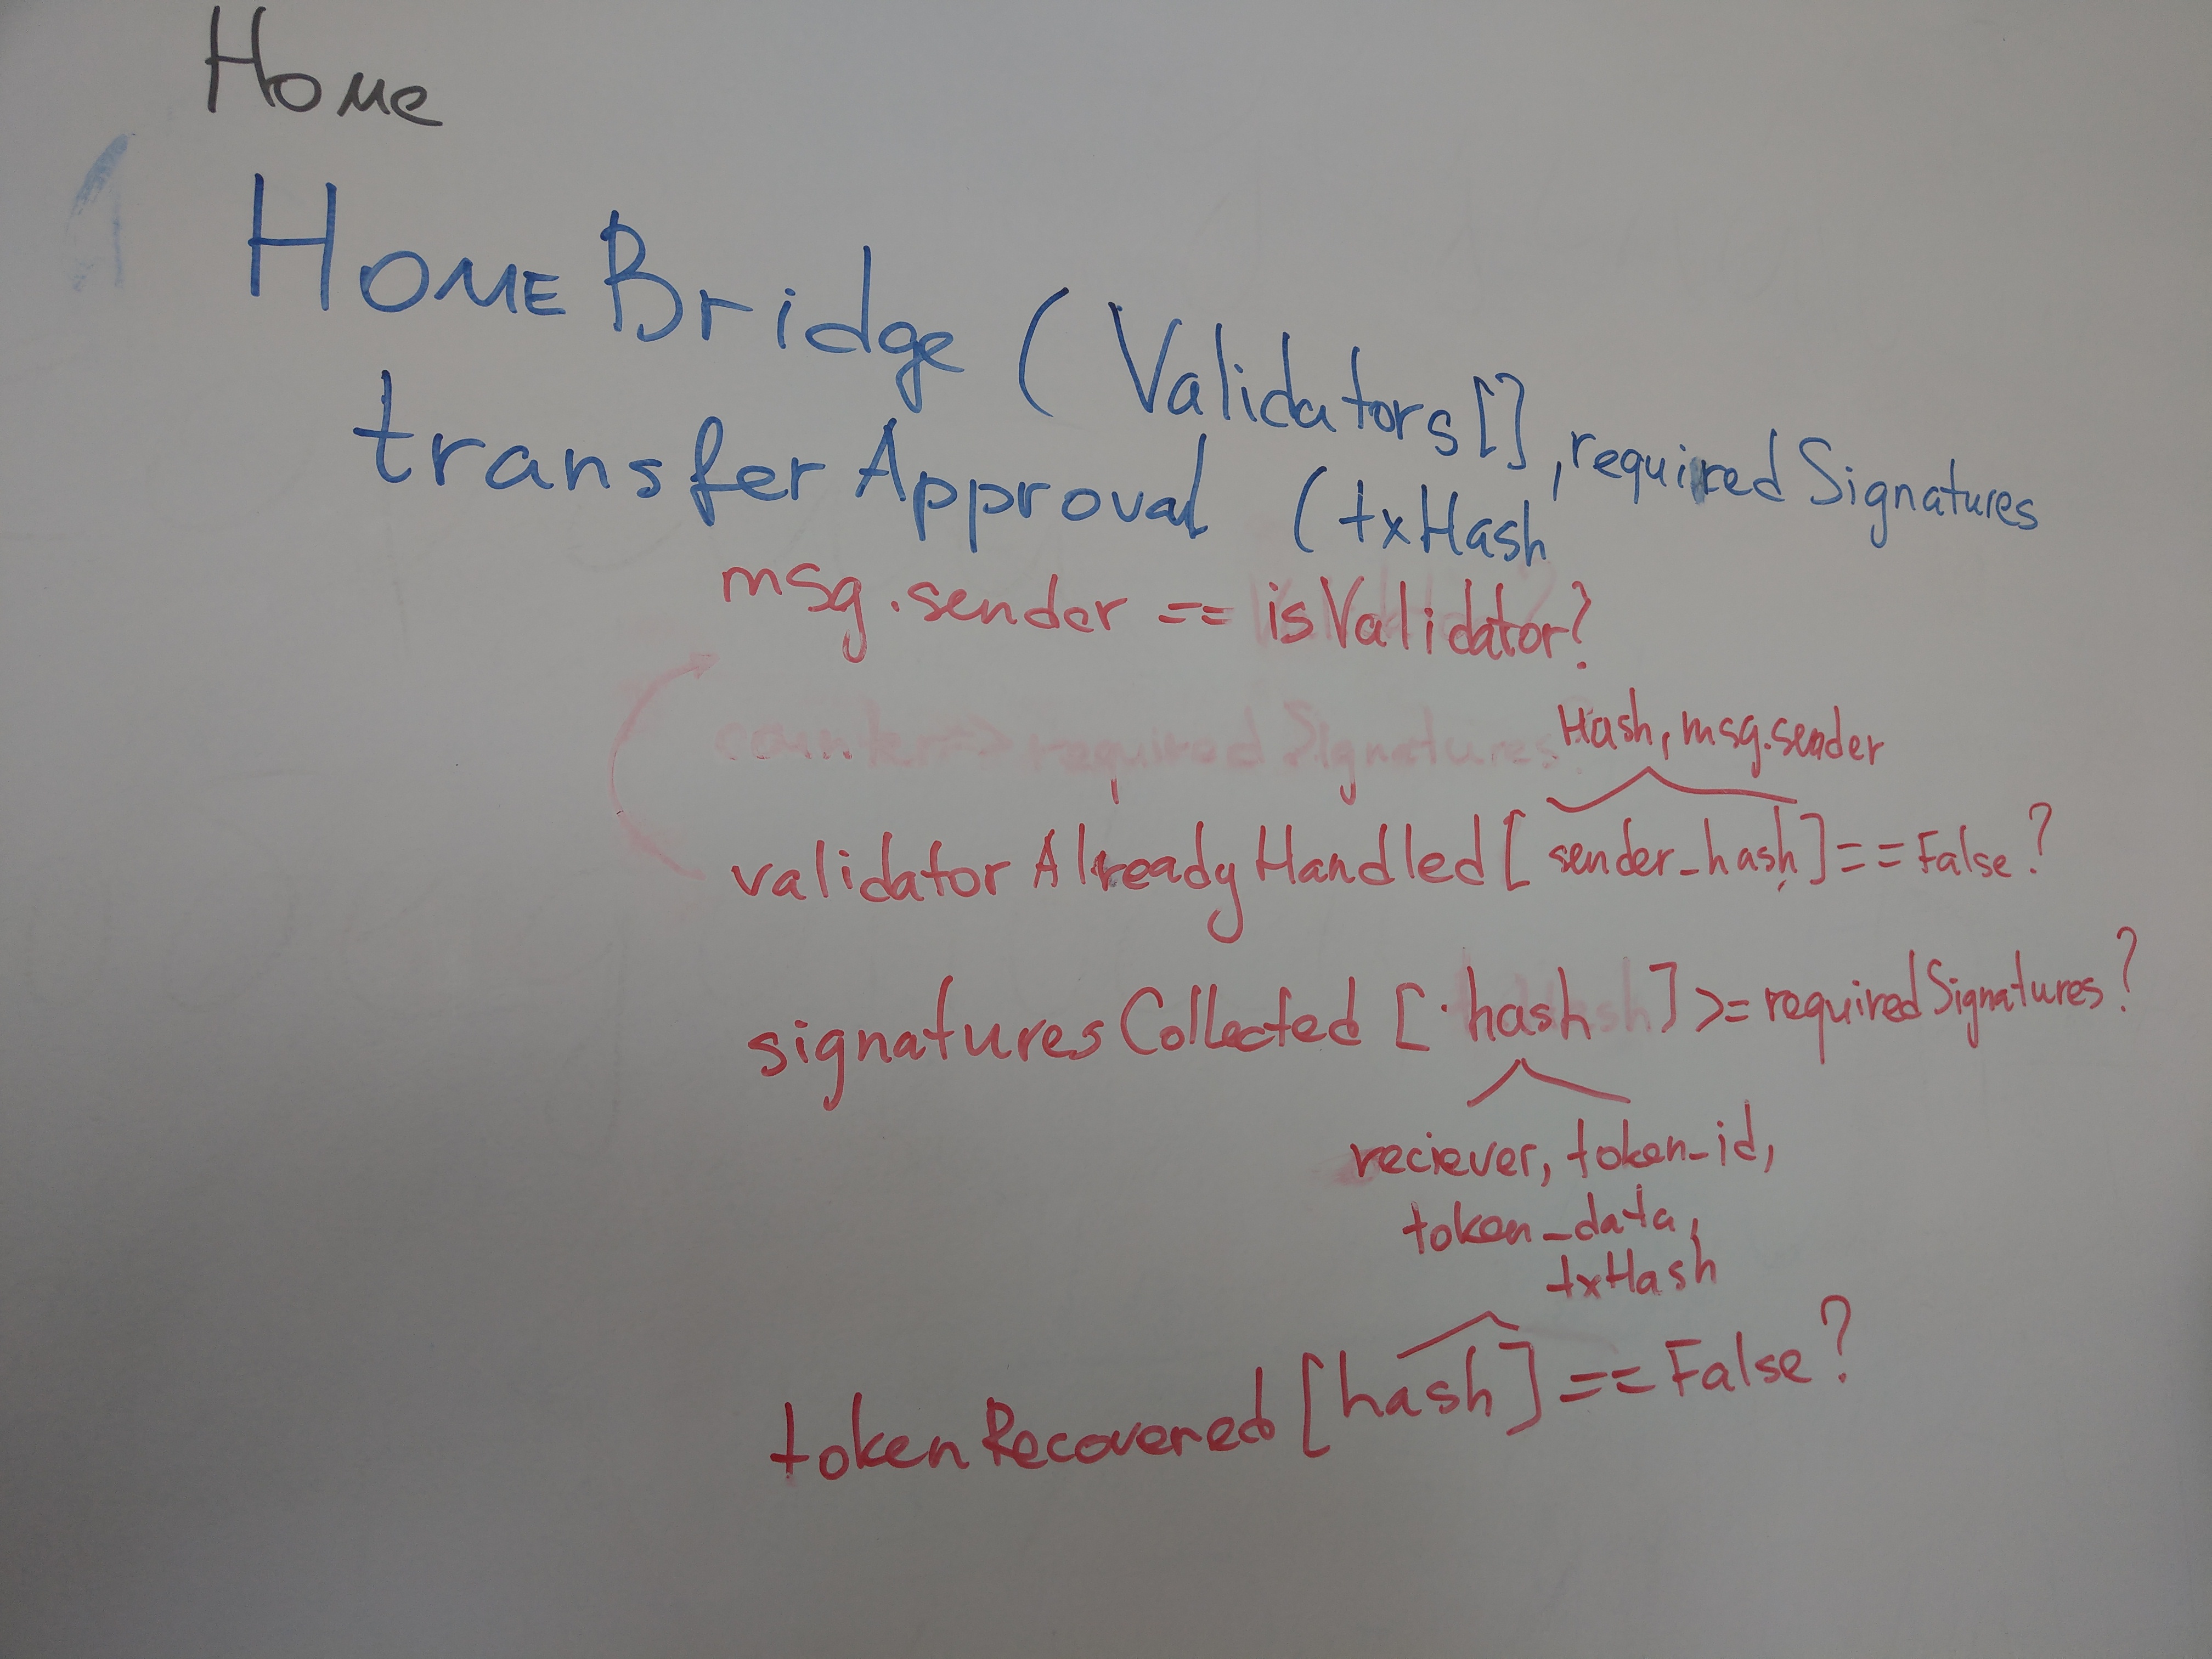 Home
HOMEBridge (Validators[], requiredSignatures
transferApproval (txHash
msg.sender == isValidator?
counter => requiredSignatures?
Hash, msg.sender
validatorAlreadyHandled[sender_hash] == False?
signaturesCollected [hash] >= requiredSignatures?
reciever, token_id,
token_data,
txHash
tokenRecovered [hash] == False?